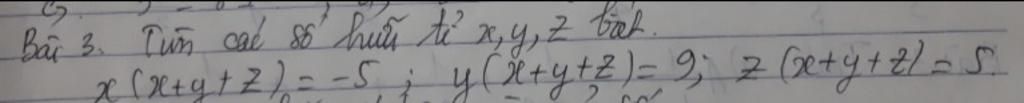 Bài 3. Tìm các số hữu tỉ x, y, z biết.
x(x+y+z) = -5 ; y(x+y+z) = 9; z(x+y+z) = 5.